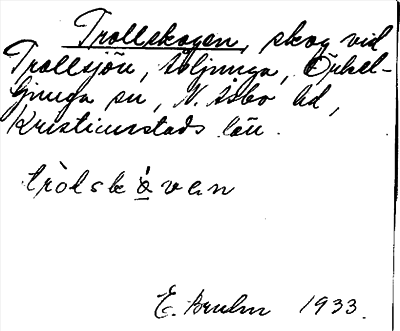 Trollskogen, skog vid
Trollsjön, Äljunga, Örkel-
ljunga sn, N. Åsbo hd,
Kristianstads län.
tròlskåvan
E. Bruhn 1933.